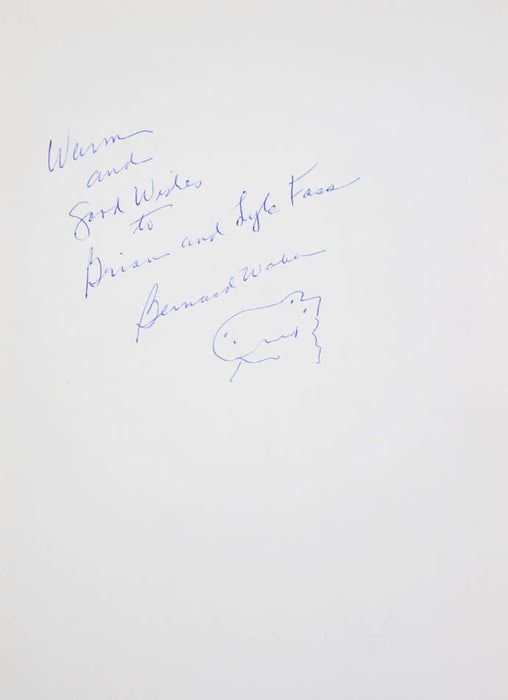 Warm
and
Good Wishes
to
Brian and Lyle Fass
Bernard Waber